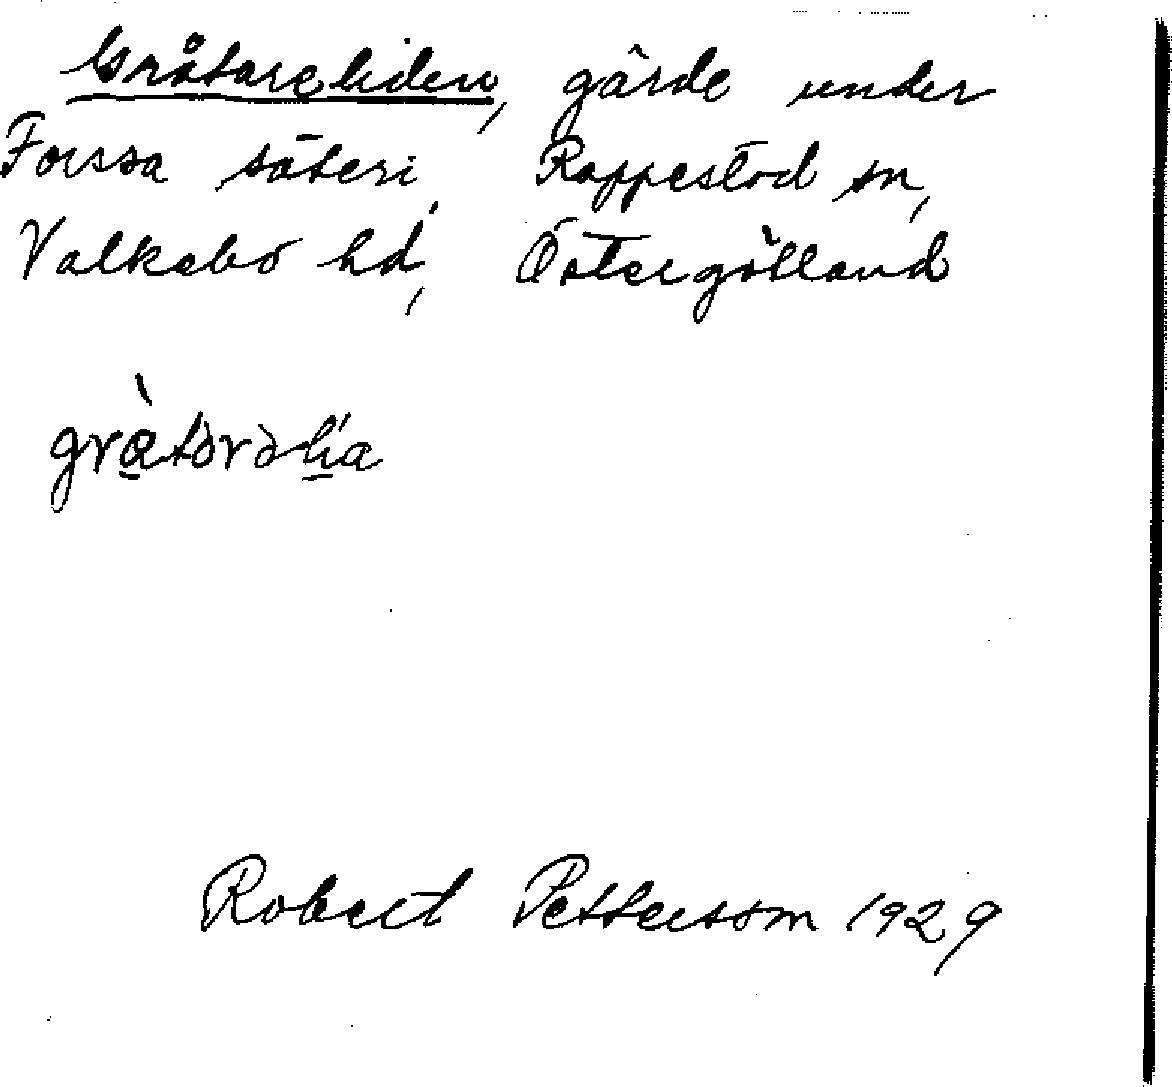 Gråtareliden, gärde under
Forssa säteri, Rappestad sn,
Valkebo hd, Östergötland
grὰtərəlìa
Robert Pettersson 1929